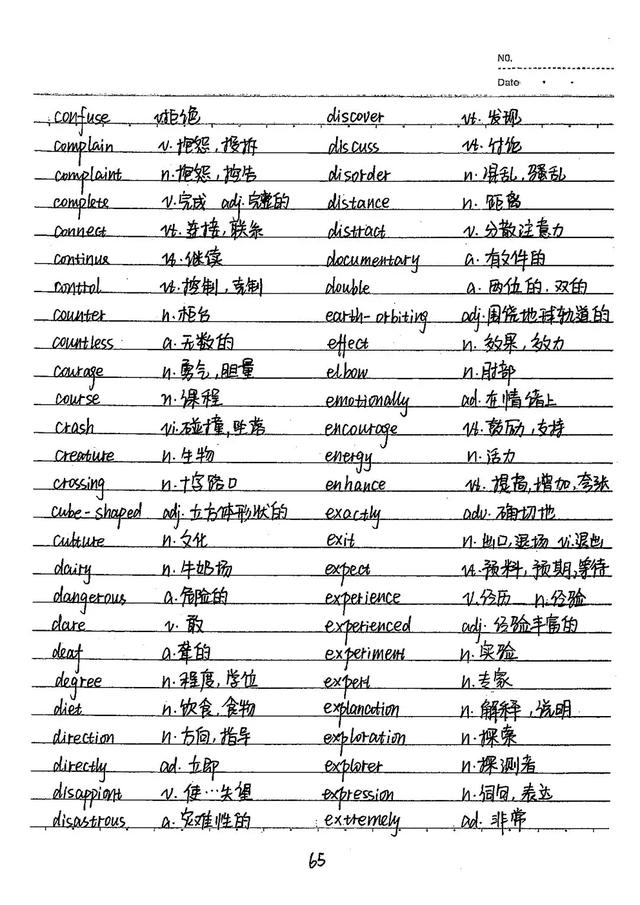 NO.
Date
confuse v.拒绝 discover vt.发现
complain v.抱怨,投拆 discuss vt.讨论
complaint n.抱怨,控告 disorder n.混乱,骚乱
complete v.完成 adj.完整的 distance n.距离
connect vt.连接,联系 distract v.分散注意力
continue vt.继续 documentary a.有文件的
control vt.控制,克制 double a.两位的,双的
counter n.柜台 earth-orbiting adj.围绕地球轨道的
countless a.无数的 effect n.效果,效力
courage n.勇气,胆量 elbow n.肘部
course n.课程 emotionally ad.在情绪上
crash vi.碰撞,坠落 encourage vt.鼓励,支持
creature n.生物 energy n.活力
crossing n.十字路口 enhance vt.提高,增加,夸张
cube-shaped adj.立方体形状的 exactly adv.确切地
culture n.文化 exit n.出口,退场 vi.退出
dairy n.牛奶场 expect vt.预料,预期,等待
dangerous a.危险的 experience v.经历 n.经验
dare v.敢 experienced adj.经验丰富的
deaf a.聋的 experiment n.实验
degree n.程度,学位 expert n.专家
diet n.饮食,食物 explanation n.解释,说明
direction n.方向,指导 exploration n.探索
directly ad.立即 explorer n.探测者
disappiont v.使…失望 expression n.词句,表达
disastrous a.灾难性的 extremely ad.非常
65